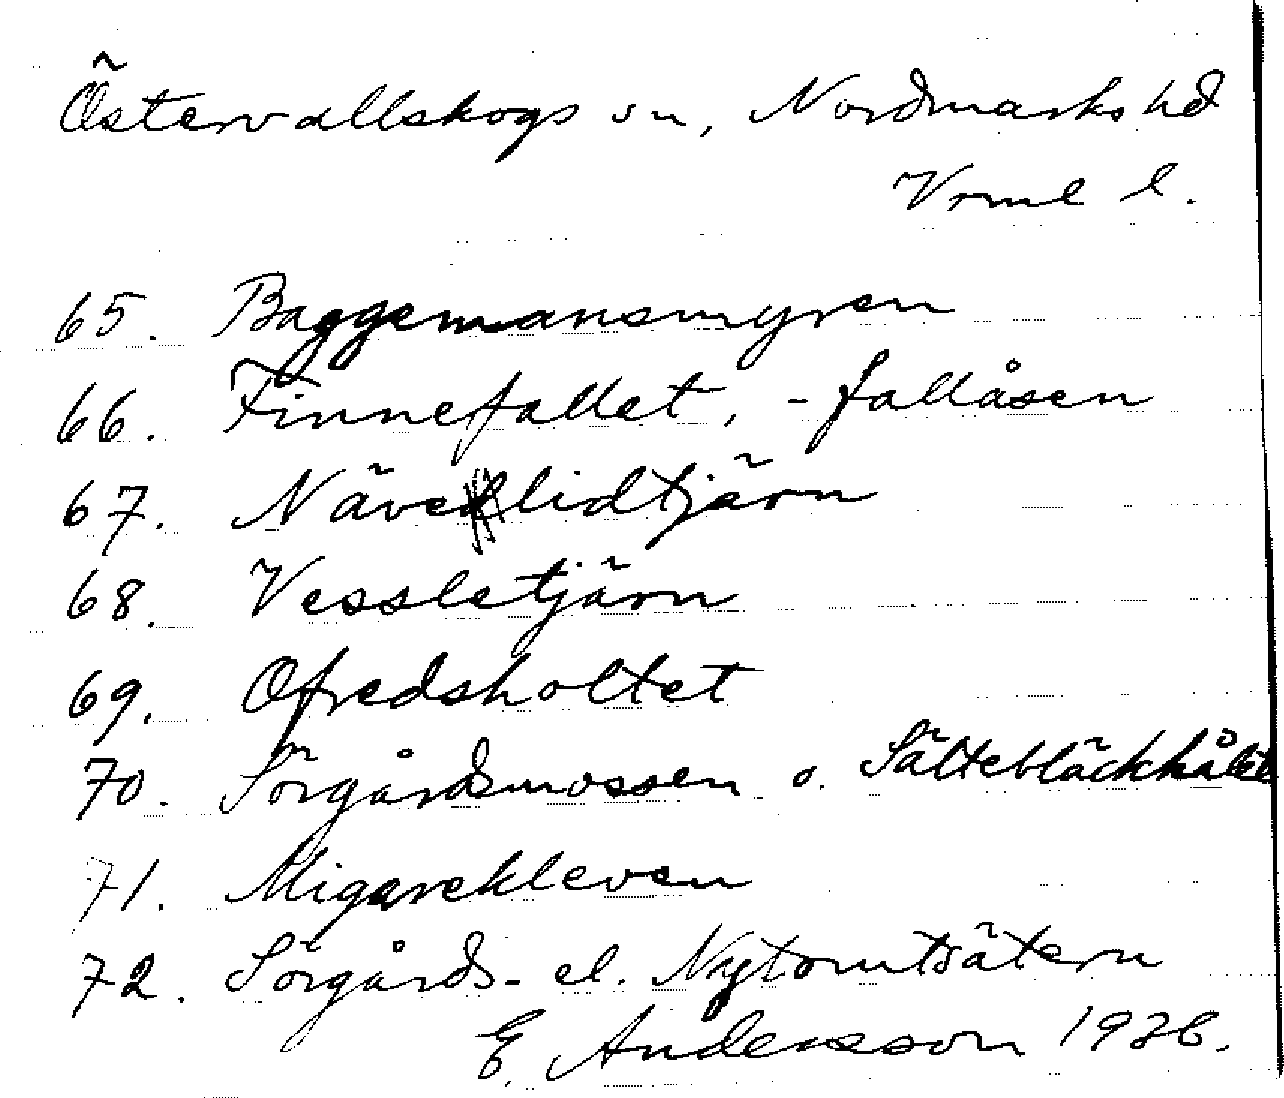 Östervallskogs sn, Nordmarks hd
Vrml l.
65. Baggemansmyren
66. Finnefallet, -fallåsen
67. Nävelidtjärn
68. Vessletjärn
69. Ofredsholtet
70. Sörgårdsmossen o. Sältebläckhålet
71. Migarekleven
72. Sörgårds- el. Nytomtsätern
E. Andersson 1926.